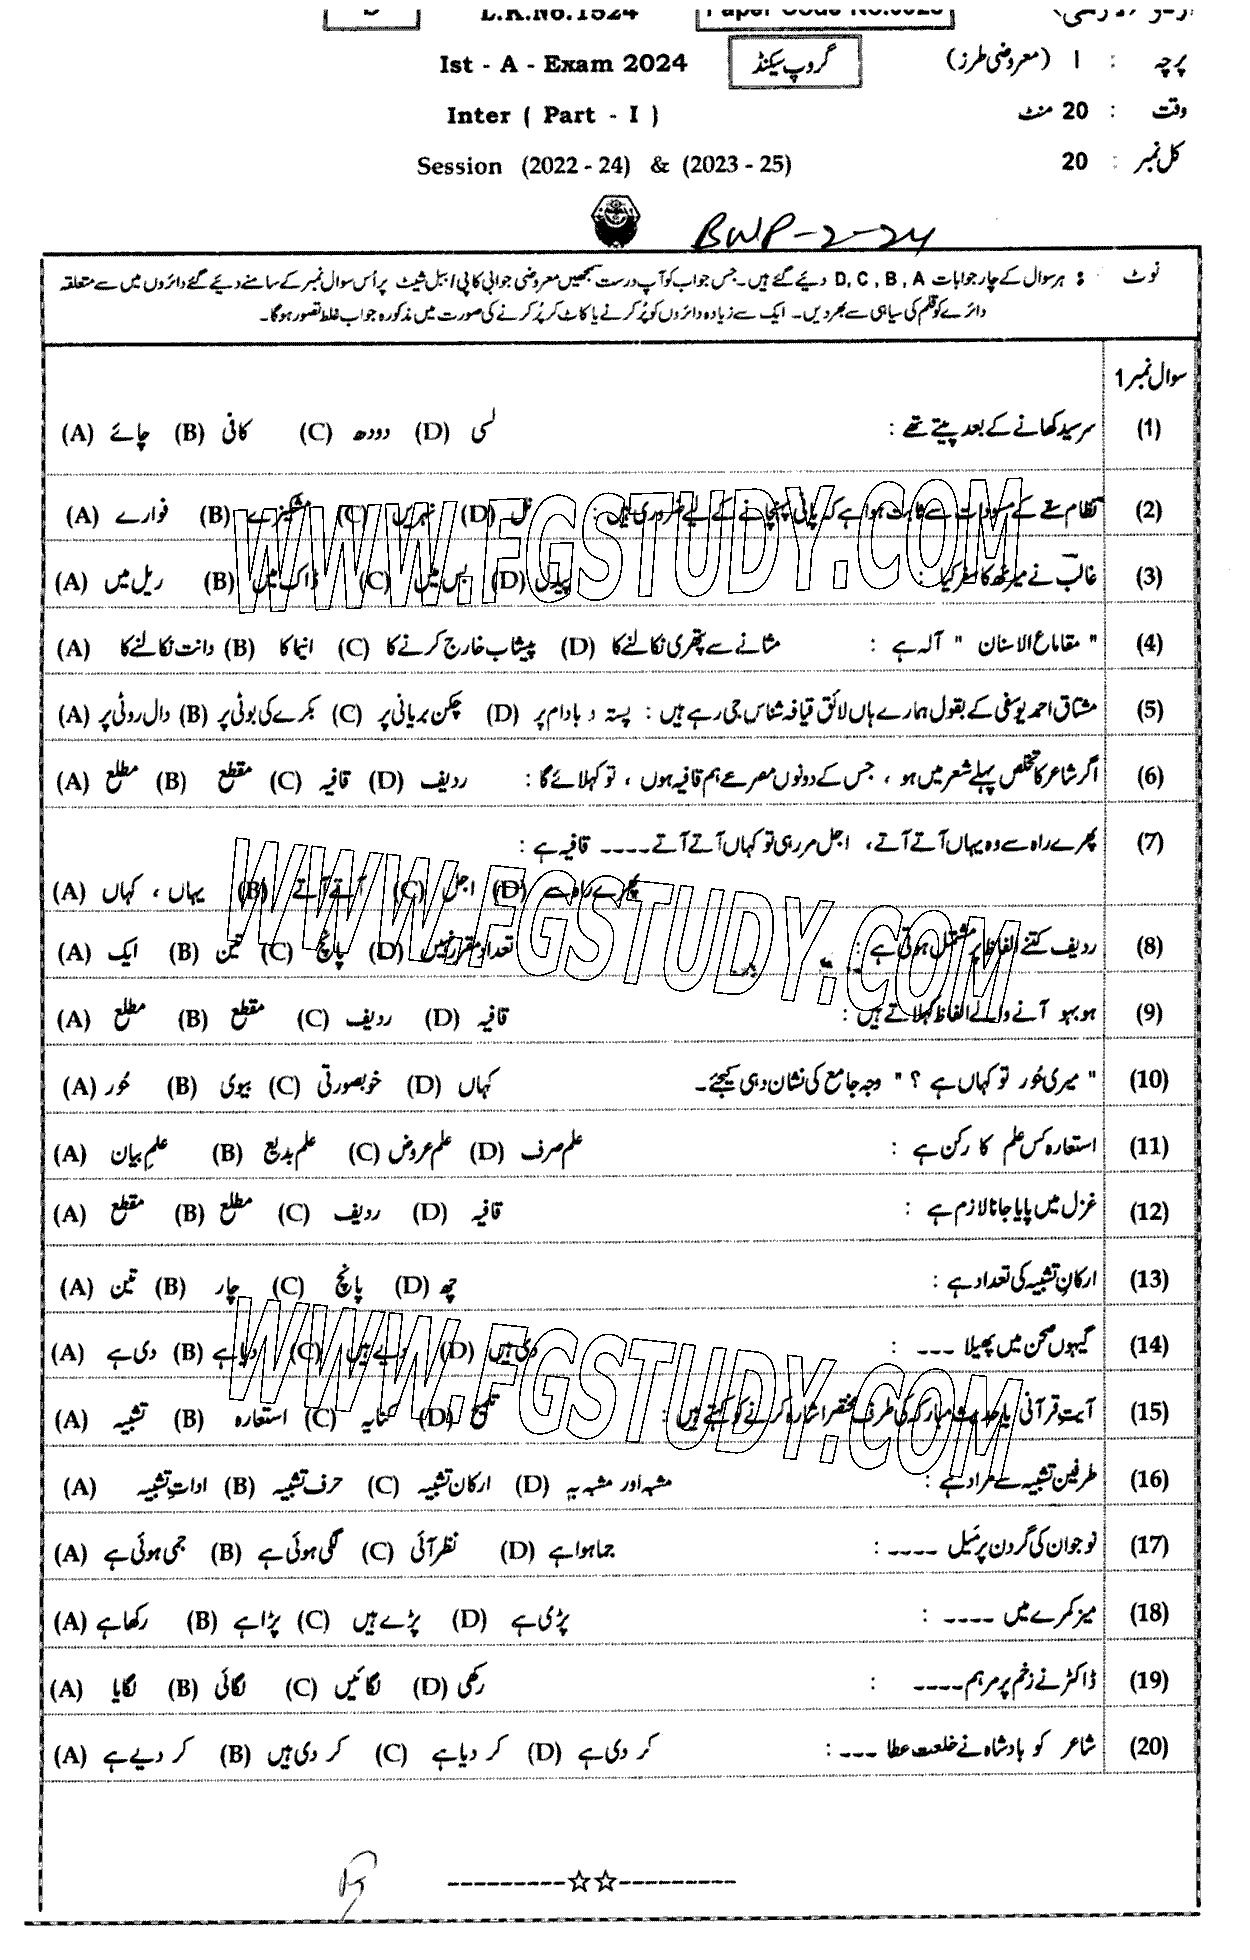 L.K.No.1524
Paper Code No.
Ist - A - Exam 2024
گروپ سیکنڈ
پرچہ : I (معروضی طرز)
Inter ( Part - I )
وقت : 20 منٹ
Session (2022 - 24) & (2023 - 25)
کل نمبر : 20
BWP-2-24
نوٹ : ہر سوال کے چار جوابات D, C, B, A دیئے گئے ہیں۔ جس جواب کو آپ درست سمجھیں معروضی جوابی کاپی / ببل شیٹ پر اُس سوال نمبر کے سامنے دیئے گئے دائروں میں سے متعلقہ
دائرے کو قلم کی سیاہی سے بھر دیں۔ ایک سے زیادہ دائروں کو پُر کرنے یا کاٹ کر پُر کرنے کی صورت میں مذکورہ جواب غلط تصور ہوگا۔
سوال نمبر 1
(1) سرسید کھانے کے بعد پیتے تھے : (A) چائے (B) کافی (C) دودھ (D) لسی
(2) نظام سقے کے مسودات سے ثابت ہوا ہے کہ پانی پہنچانے کے لیے ضروری ہیں : (A) فوارے (B) مشکیزے (C) نہریں (D) نل
(3) غالب نے میرٹھ کا سفر کیا : (A) ریل میں (B) ڈاک میں (C) بس میں (D) پیدل
(4) " مقاماع الاسنان " آلہ ہے : (A) دانت نکالنے کا (B) انیما کا (C) پیشاب خارج کرنے کا (D) مثانے سے پتھری نکالنے کا
(5) مشتاق احمد یوسفی کے بقول ہمارے ہاں لائق قیافہ شناس جی رہے ہیں : (A) دال روٹی پر (B) بکرے کی بوٹی پر (C) چکن بریانی پر (D) پستہ و بادام پر
(6) اگر شاعر کا تخلص پہلے شعر میں ہو ، جس کے دونوں مصرعے ہم قافیہ ہوں ، تو کہلائے گا : (A) مطلع (B) مقطع (C) قافیہ (D) ردیف
(7) پھرے راہ سے وہ یہاں آتے آتے، اجل مر رہی تو کہاں آتے آتے ---- قافیہ ہے :
(A) یہاں ، کہاں (B) آتے آتے (C) اجل (D) پھرے راہ سے
(8) ردیف کتنے الفاظ پر مشتمل ہوتی ہے : (A) ایک (B) تین (C) پانچ (D) تعداد مقرر نہیں
(9) ہو بہو آنے والے الفاظ کہلاتے ہیں : (A) مطلع (B) مقطع (C) ردیف (D) قافیہ
(10) " میری حُور تو کہاں ہے ؟ " وجہ جامع کی نشان دہی کیجئے۔ (A) حُور (B) بیوی (C) خوبصورتی (D) کہاں
(11) استعارہ کس علم کا رکن ہے : (A) علمِ بیان (B) علم بدیع (C) علم عروض (D) علم صرف
(12) غزل میں پایا جانا لازم ہے : (A) مقطع (B) مطلع (C) ردیف (D) قافیہ
(13) ارکانِ تشبیہ کی تعداد ہے : (A) تین (B) چار (C) پانچ (D) چھ
(14) گیہوں صحن میں پھیلا --- : (A) دی ہے (B) دیا ہے (C) دیے ہیں (D) دی ہیں
(15) آیت قرآنی یا حدیث مبارکہ کی طرف مختصر اشارہ کرنے کو کہتے ہیں : (A) تشبیہ (B) استعارہ (C) کنایہ (D) تلمیح
(16) طرفین تشبیہ سے مراد ہے : (A) اداتِ تشبیہ (B) حرف تشبیہ (C) ارکان تشبیہ (D) مشبہ اور مشبہ بہ
(17) نوجوان کی گردن پر مَیل ---- : (A) جمی ہوئی ہے (B) لگی ہوئی ہے (C) نظر آئی (D) جما ہوا ہے
(18) میز کمرے میں ---- : (A) رکھا ہے (B) پڑا ہے (C) پڑے ہیں (D) پڑی ہے
(19) ڈاکٹر نے زخم پر مرہم ---- : (A) لگایا (B) لگائی (C) لگائیں (D) رکھی
(20) شاعر کو بادشاہ نے خلعت عطا --- : (A) کر دیے ہے (B) کر دی ہیں (C) کر دیا ہے (D) کر دی ہے
WWW.FGSTUDY.COM
WWW.FGSTUDY.COM
WWW.FGSTUDY.COM
---------☆☆---------